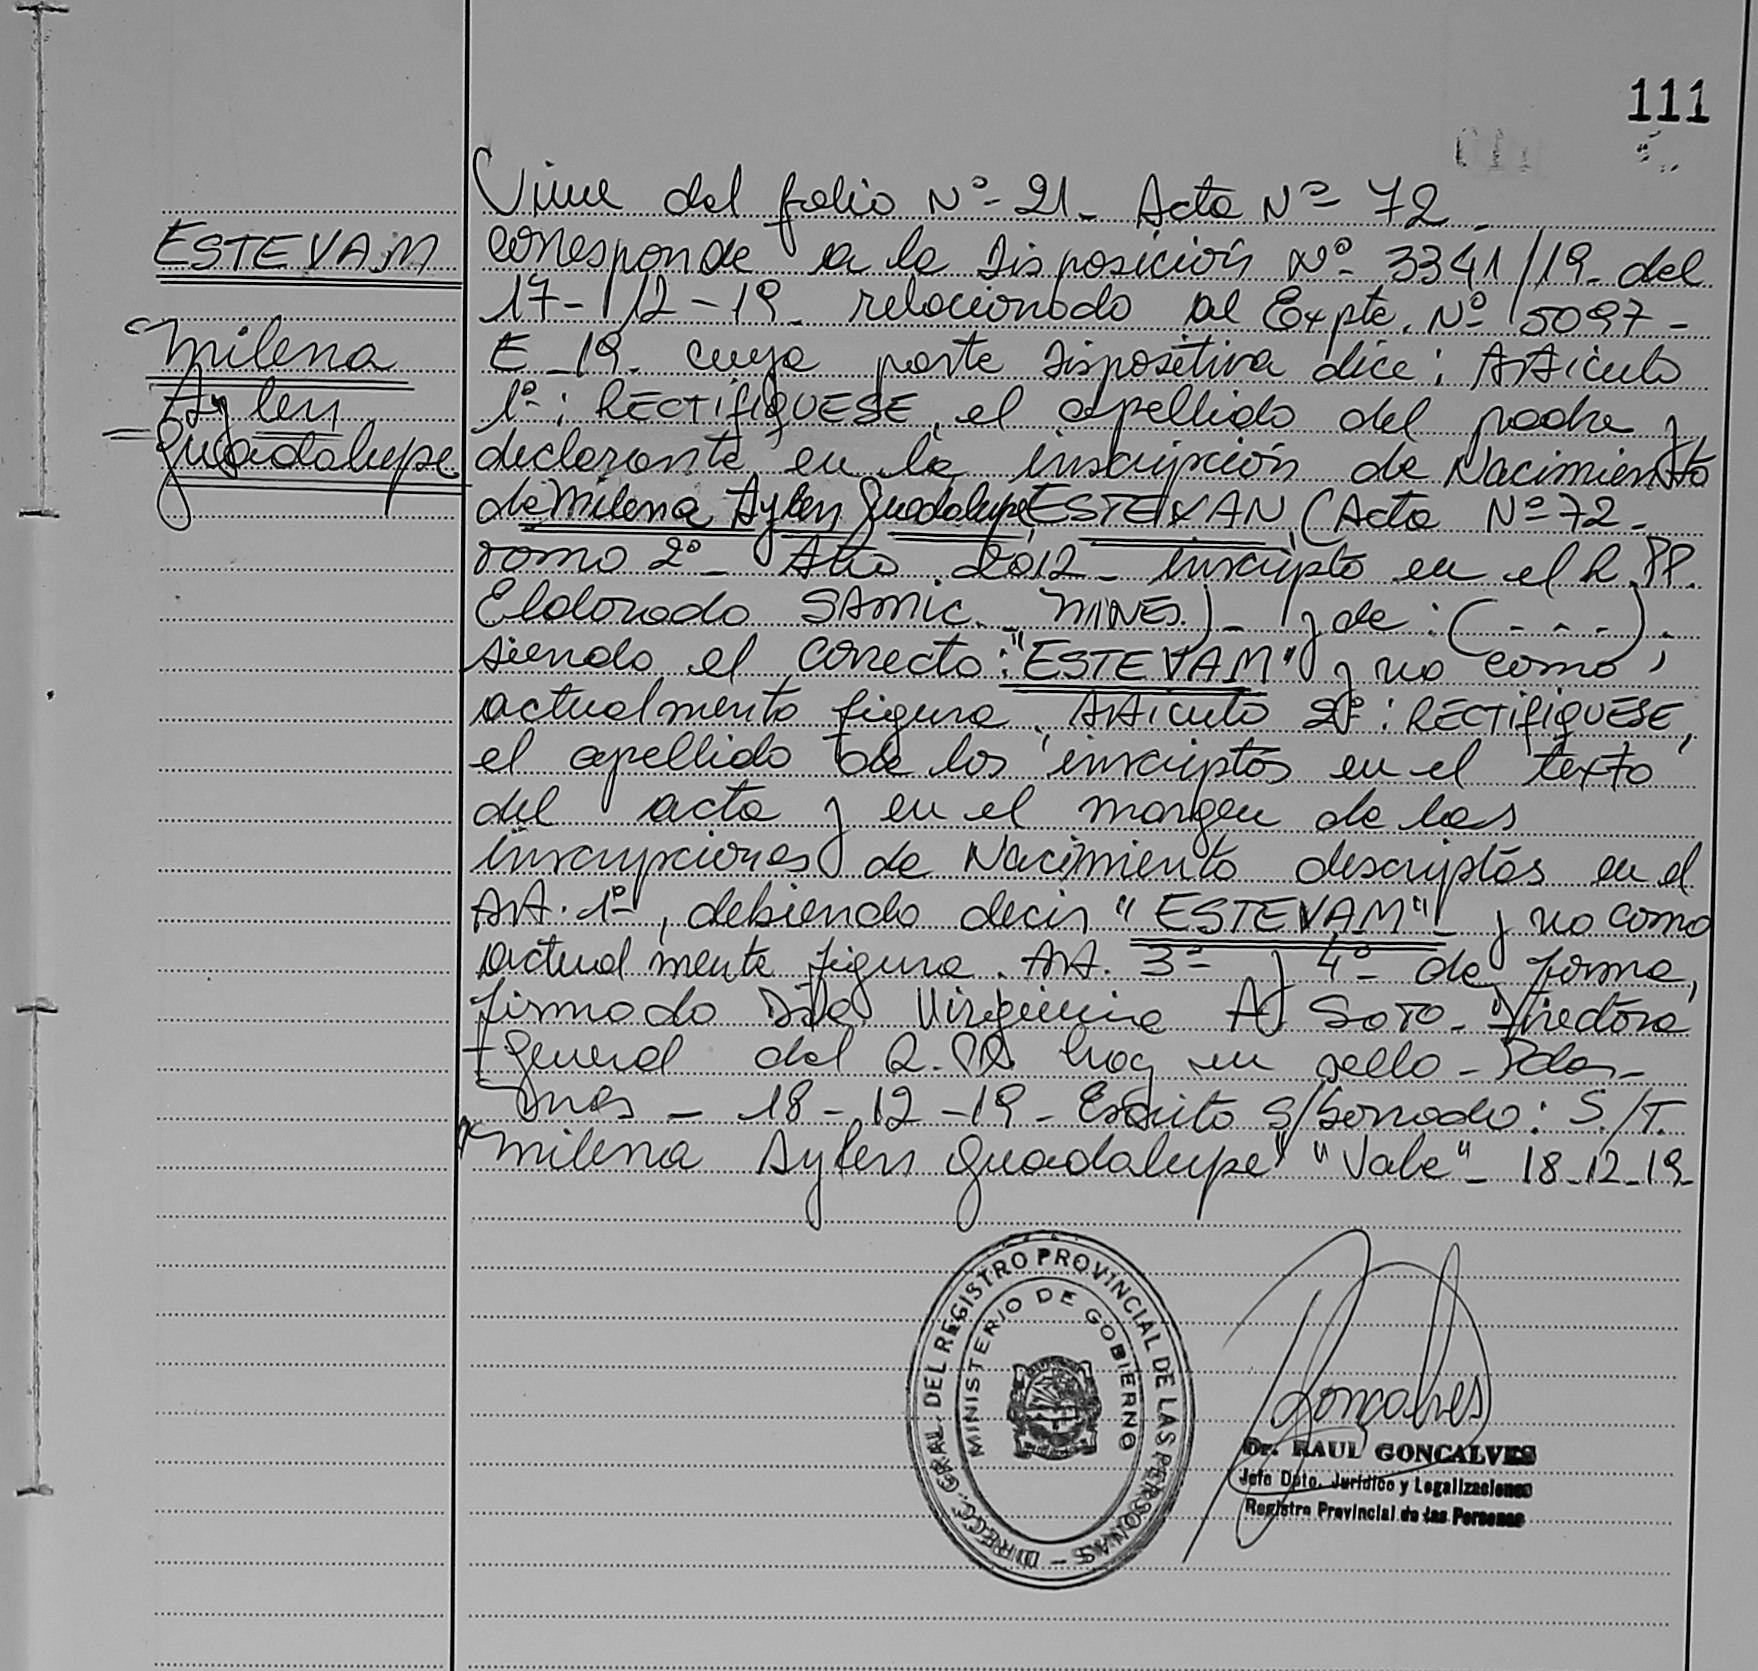 111
ESTEVAM
Milena
Aylen
Guadalupe
Viene del folio Nº 21- Acta Nº 72-
corresponde a la Disposición Nº 3341/19- del
17-12-19- relacionado al Expte. Nº 5097-
E-19- cuya parte dispositiva dice: Artículo
1º: RECTIFIQUESE, el apellido del padre y
declarante en la inscripción de Nacimiento
de Milena Aylen Guadalupe ESTEVAN, (Acta Nº 72-
Tomo 2º- Año 2012- inscripto en el R.PP.
Eldorado SAMIC.- MNES.)- y de: (- - - -).
siendo el correcto: "ESTEVAM" y no como
actualmente figura. Artículo 2º: RECTIFIQUESE,
el apellido de los inscriptos en el texto
del acta y en el margen de las
inscripciones de Nacimiento descriptas en el
Art. 1º, debiendo decir "ESTEVAM"- y no como
actualmente figura. Art. 3º y 4º de forma,
firmado Dra. Virginia A. Soto- Directora
General del R.PP. hay un sello- Pdas-
Mnes- 18-12-19- Escrito S/borrado: S./T.
"Milena Aylen Guadalupe" "Vale"- 18-12-19
DIRECC. GRAL. DEL REGISTRO PROVINCIAL DE LAS PERSONAS -
MINISTERIO DE GOBIERNO
Gonçalves
Dr. RAUL GONCALVES
Jefe Dpto. Jurídico y Legalizaciones
Registro Provincial de las Personas